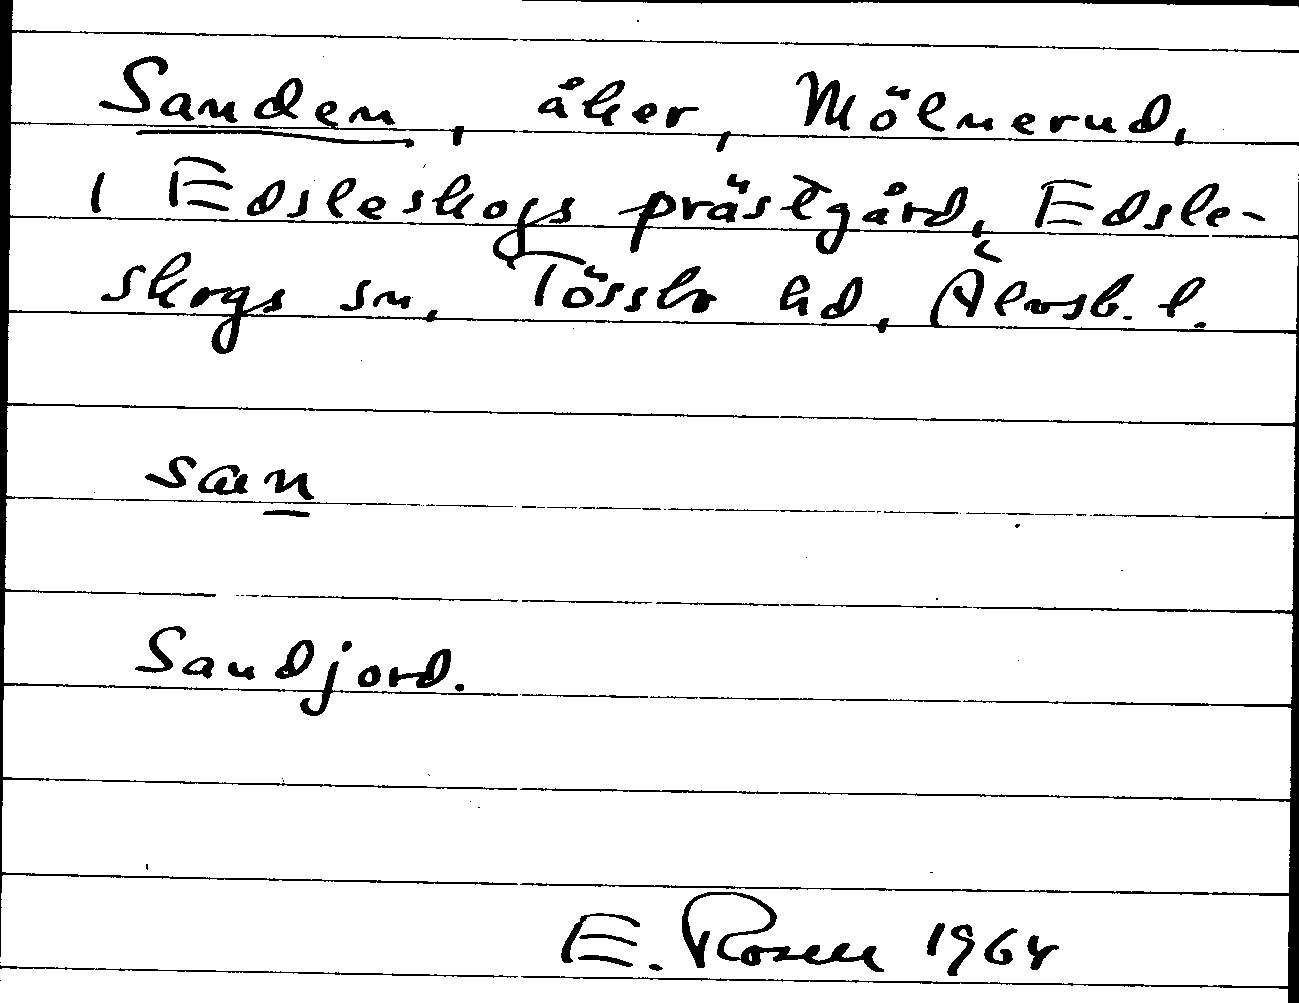 Sanden, åker, Mölnerud,
1 Edsleskogs prästgård, Edsle-
skogs sn, Tössbo hd, Älvsb. l.
san
Sandjord.
E. Rosell 1964